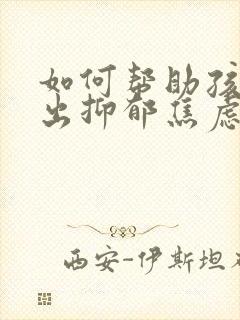 如何帮助孩
出抑郁焦虑
西安-伊斯坦